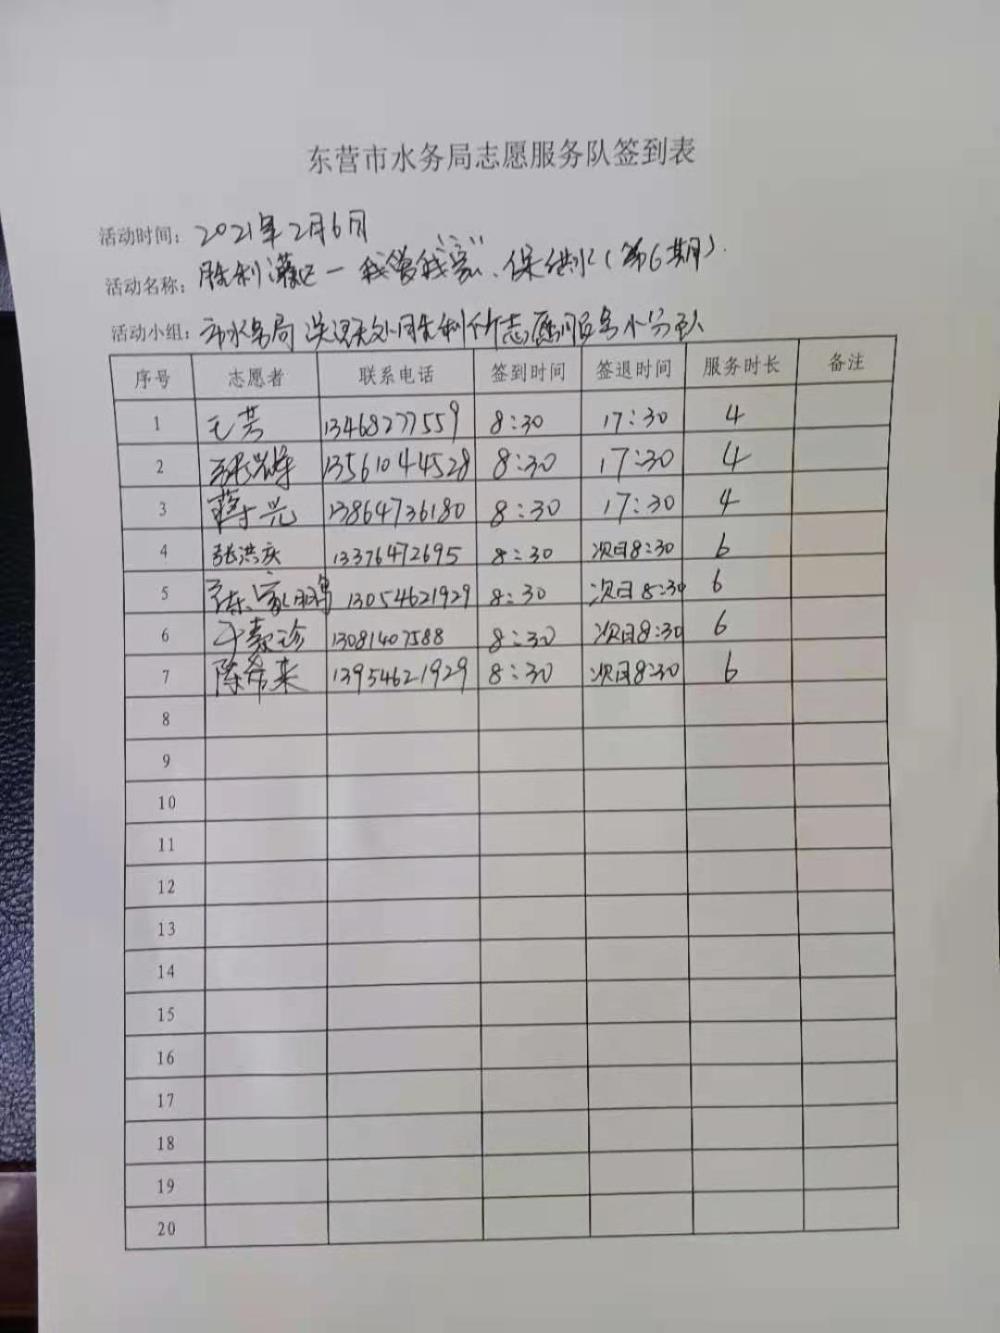 东营市水务局志愿服务队签到表
活动时间: 2021年2月6日
活动名称: 胜利灌区一我管我家、保供水(第6期)
活动小组: 市水务局 处胜利所志愿服务小分队
序号 志愿者 联系电话 签到时间 签退时间 服务时长 备注
1 王芳 13468277559 8:30 17:30 4
2 13561044528 8:30 17:30 4
3 蒋兴 13864736180 8:30 17:30 4
4 张洪庆 13376472695 8:30 次日8:30 6
5 陈家鹏 13054621929 8:30 次日8:30 6
6 13081407588 8:30 次日8:30 6
7 陈希来 13954621929 8:30 次日8:30 6
8
9
10
11
12
13
14
15
16
17
18
19
20